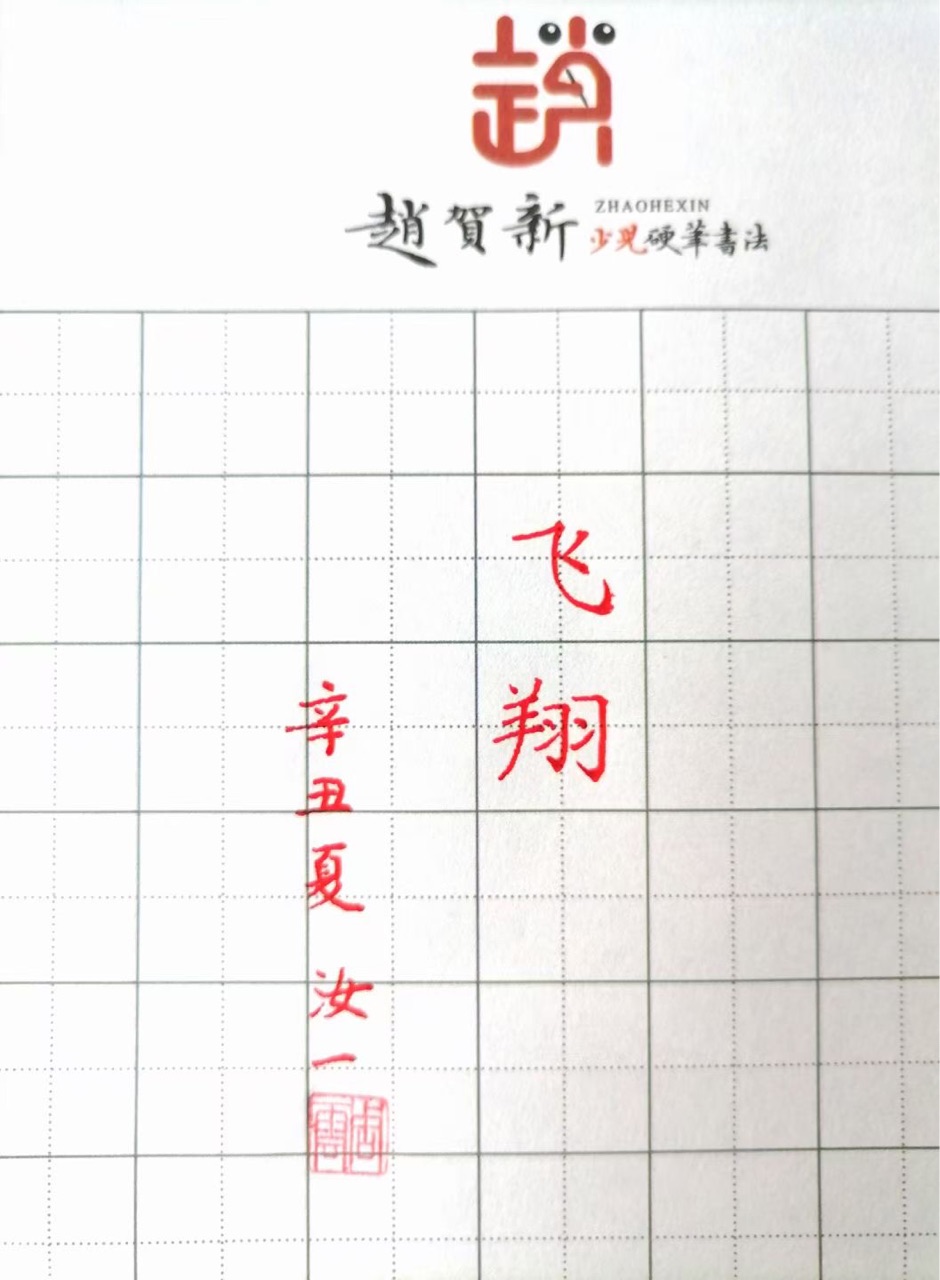 趙
趙賀新 ZHAOHEXIN
少児硬筆書法
飞翔
辛丑夏 汝一